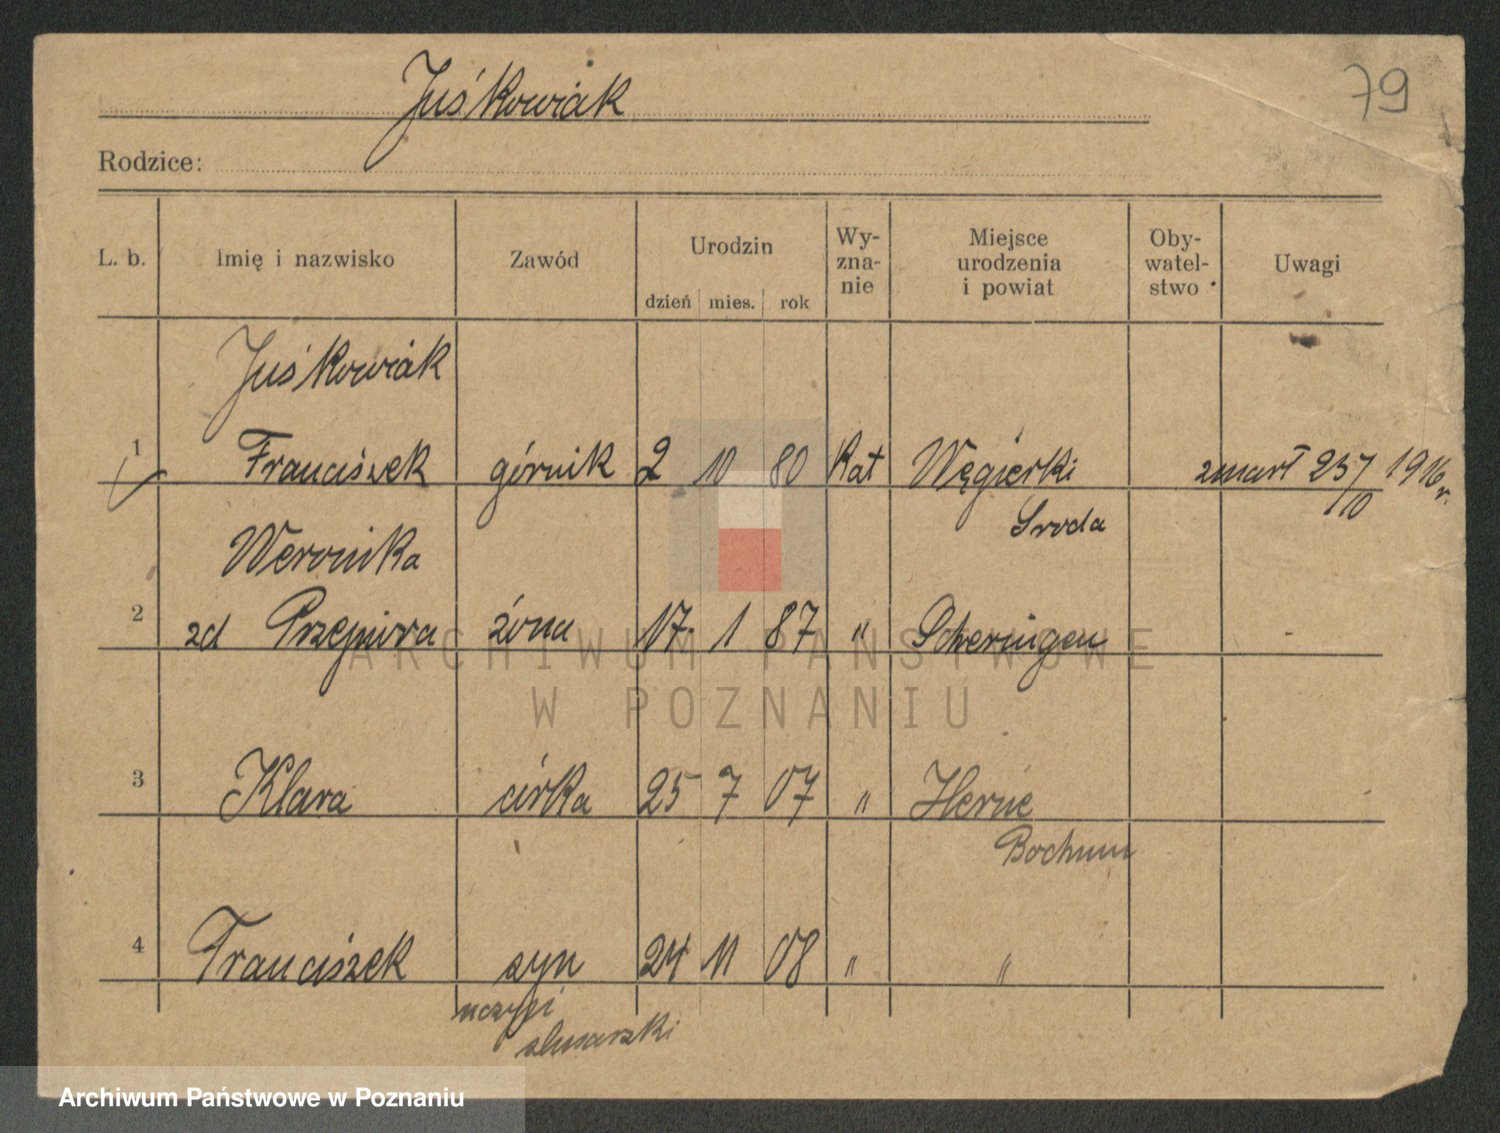 79
Juśkowiak
Rodzice:
L. b. Imię i nazwisko Zawód Urodzin dzień mies. rok Wy-zna-nie Miejsce urodzenia i powiat Oby-watel-stwo Uwagi
Juśkowiak
1 Franciszek górnik 2 10 80 Kat Węgierki zmarł 25/10 1916 r.
Sroda
Weronika
2 zd żona 17. 1 87 "
3 Klara córka 25 7 07 " Herne
Bochum
4 Franciszek syn 24 11 08 " "
uczyń
slusarski
ARCHIWUM PAŃSTWOWE
W POZNANIU
Archiwum Państwowe w Poznaniu